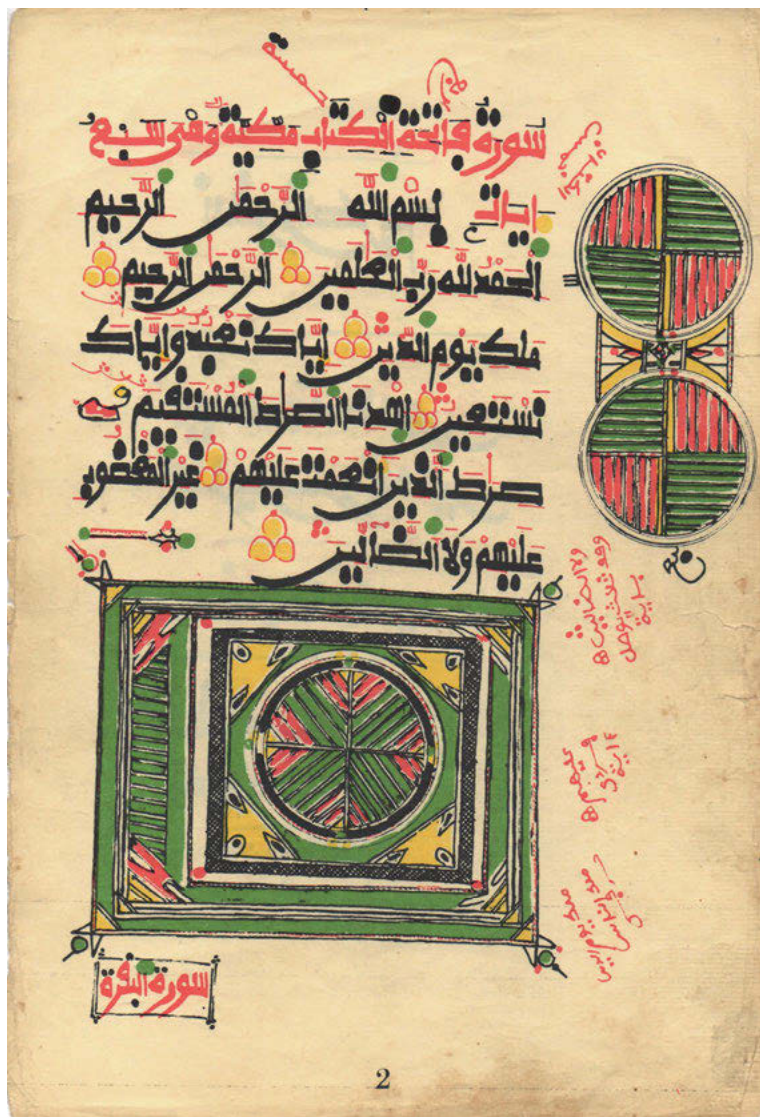 خمسة
سورة فاتحة الكتاب مكية وهى سبع
ايات بسم الله الرحمن الرحيم
الحمد لله رب العلمين الرحمن الرحيم
ملك يوم الدين اياك نعبد واياك
نستعين اهدنا الصرط المستقيم
صرط الذين انعمت عليهم غير المغضوب
عليهم ولا الضالين
ولا الضالين
سورة البقرة
2